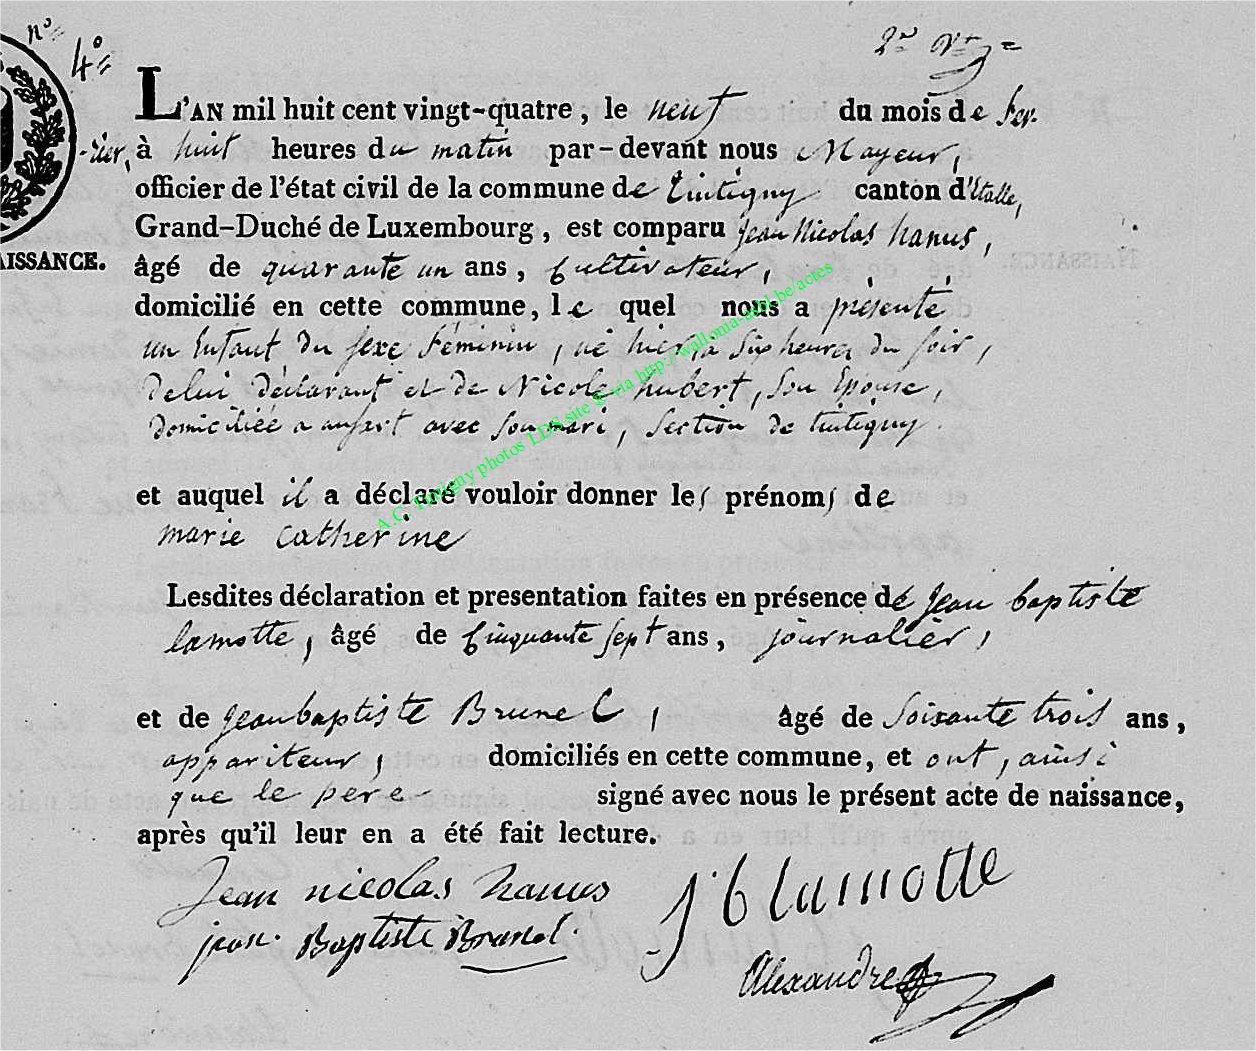 n°=
4°=
L'AN mil huit cent vingt-quatre, le neuf du mois de fev.
-rier, à huit heures du matin par-devant nous Mayeur,
officier de l'état civil de la commune de tintigny canton d'Etalle,
Grand-Duché de Luxembourg, est comparu Jean Nicolas hanus,
AISSANCE.
âgé de quarante un ans, Cultivateur,
domicilié en cette commune, le quel nous a présenté
un Enfant du sexe féminin, né hier, a six heures du soir,
de lui déclarant et de Nicole hubert, son Epouse,
domiciliée a ansart avec son mari, section de tintigny.
A.C. Tintigny photos LDS site © via http://wallonia-asbl.be/actes
et auquel il a déclaré vouloir donner les prénoms de
marie catherine
Lesdites déclaration et presentation faites en présence de Jean baptiste
lamotte, âgé de Cinquante sept ans, journalier,
et de Jean baptiste Brunel, âgé de soixante trois ans,
appariteur, domiciliés en cette commune, et ont, ainsi
que le pere signé avec nous le présent acte de naissance,
après qu'il leur en a été fait lecture.
Jean nicolas hanus
J b lamotte
jean. Baptiste Brunel.
Alexandre